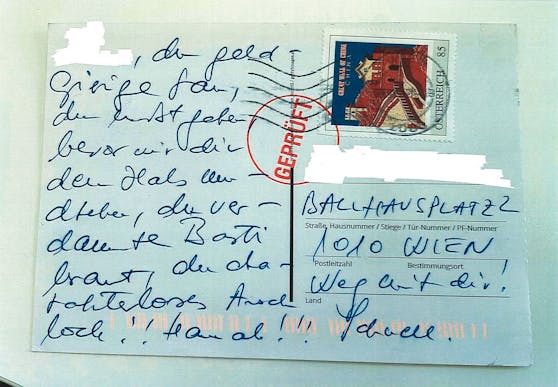 , du geld-
gierige Sau,
du musst gehen
bevor wir dir
den Hals um-
drehen, du ver-
dammte Basti
braut, du cha-
rakterloses Arsch
loch!! Hau ab!!!
GEPRÜFT
GREAT WALL OF CHINA
CHINA
ÖSTERREICH 85
BALLHAUSPLATZ 2
Straße, Hausnummer / Stiege / Tür-Nummer / PF-Nummer
1010 WIEN
Postleitzahl Bestimmungsort
Weg mit dir!
Land